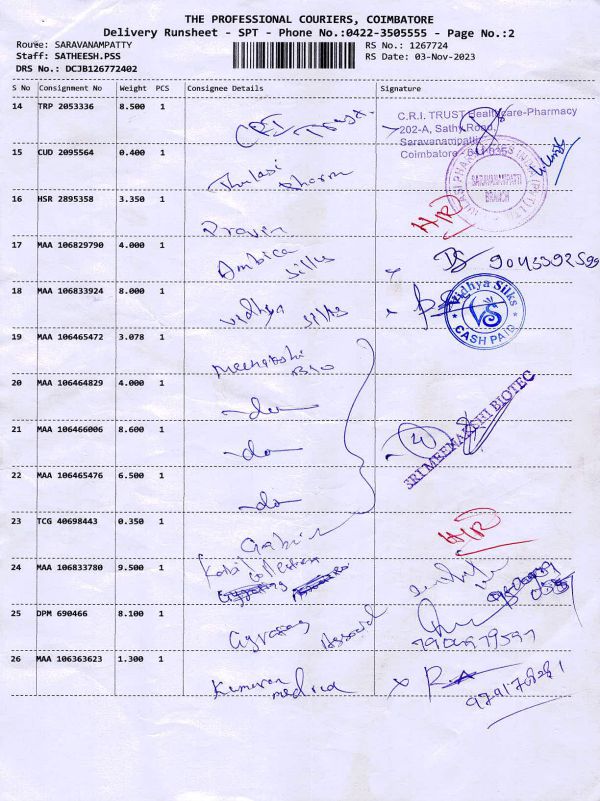 THE PROFESSIONAL COURIERS, COIMBATORE
Delivery Runsheet - SPT - Phone No.:0422-3505555 - Page No.:2
Route: SARAVANAMPATTY
Staff: SATHEESH.PSS
DRS No.: DCJB126772402
RS No.: 1267724
RS Date: 03-Nov-2023
S No Consignment No Weight PCS Consignee Details Signature
14 TRP 2053336 8.500 1 CRI Trust
C.R.I. TRUST Healthcare-Pharmacy
202-A, Sathy Road,
Saravanampatti
Coimbatore - 641 035
15 CUD 2095564 0.400 1 Thulasi Pharm
SARAVANAMPATTI
BRANCH
16 HSR 2895358 3.350 1 Pravin
17 MAA 106829790 4.000 1 Ambica Silks
18 MAA 106833924 8.000 1 Vidhya Silks
Vidhya Silks
VS
CASH PAID
19 MAA 106465472 3.078 1 Meenakshi Bio
20 MAA 106464829 4.000 1 do
21 MAA 106466006 8.600 1 do
SRI MEENAKSHI BIOTEC
22 MAA 106465476 6.500 1 do
23 TCG 40698443 0.350 1
24 MAA 106833780 9.500 1 Collection
25 DPM 690466 8.100 1
26 MAA 106363623 1.300 1 Kumaran